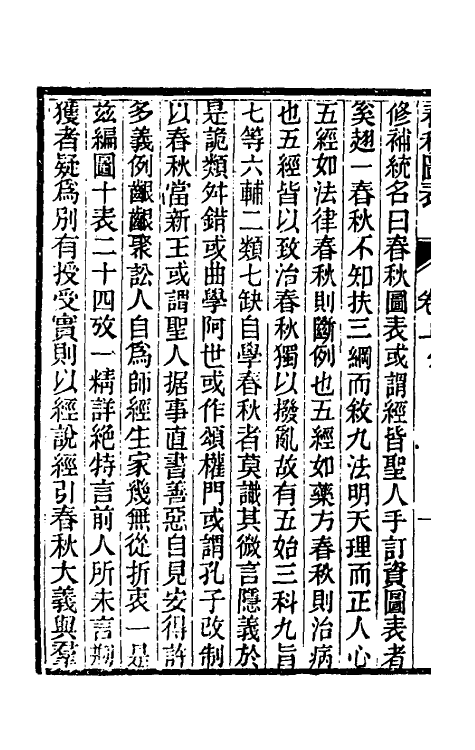 春秋圖表 卷上 一
修補統名曰春秋圖表或謂經皆聖人手訂資圖表者
奚趐一春秋不知扶三綱而敘九法明天理而正人心
五經如法律春秋則斷例也五經如藥方春秋則治病
也五經皆以致治春秋獨以撥亂故有五始三科九旨
七等六輔二類七缺自學春秋者莫識其微言隱義於
是詭類舛錯或曲學阿世或作頌權門或謂孔子改制
以春秋當新王或謂聖人据事直書善惡自見安得許
多義例齦齦聚訟人自為師經生家幾無從折衷一是
兹編圖十表二十四攷一精詳絶特言前人所未言期
獲者疑為別有授受實則以經說經引春秋大義與羣